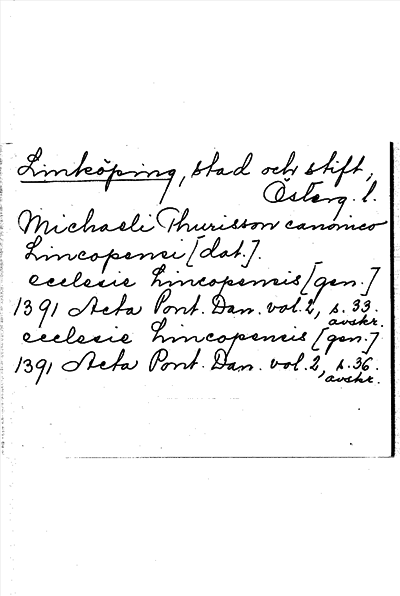 Linköping, stad och stift,
Österg. l.
Michaeli Thurisson canonico
Lincopensi [dat.].
ecclesie Lincopensis [gen.]
1391 Acta Pont. Dan. vol. 2, s. 33.
avskr.
ecclesie Lincopensis [gen.]
1391 Acta Pont. Dan. vol. 2, s. 36.
avskr.